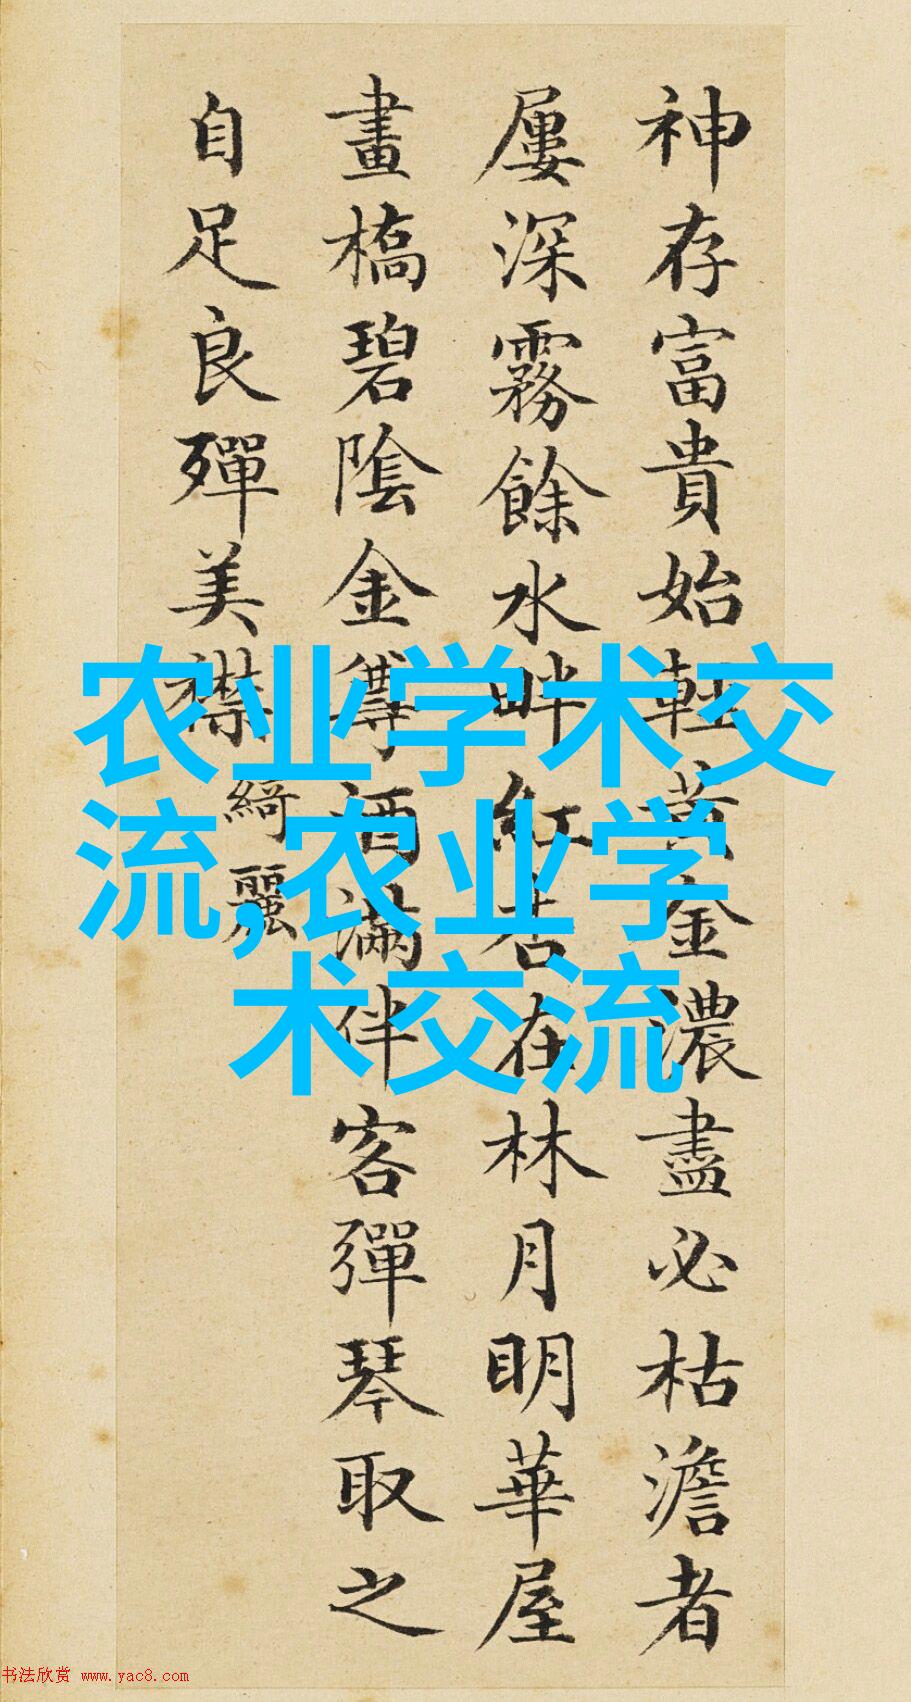 神存富貴始輕黃金濃盡必枯澹者
屢深霧餘水畔紅杏在林月明華屋
畫橋碧陰金尊酒滿伴客彈琴取之
自足良殫美襟
綺麗
农业学术交
流,农业学
术交流
书法欣赏 www.yac8.com